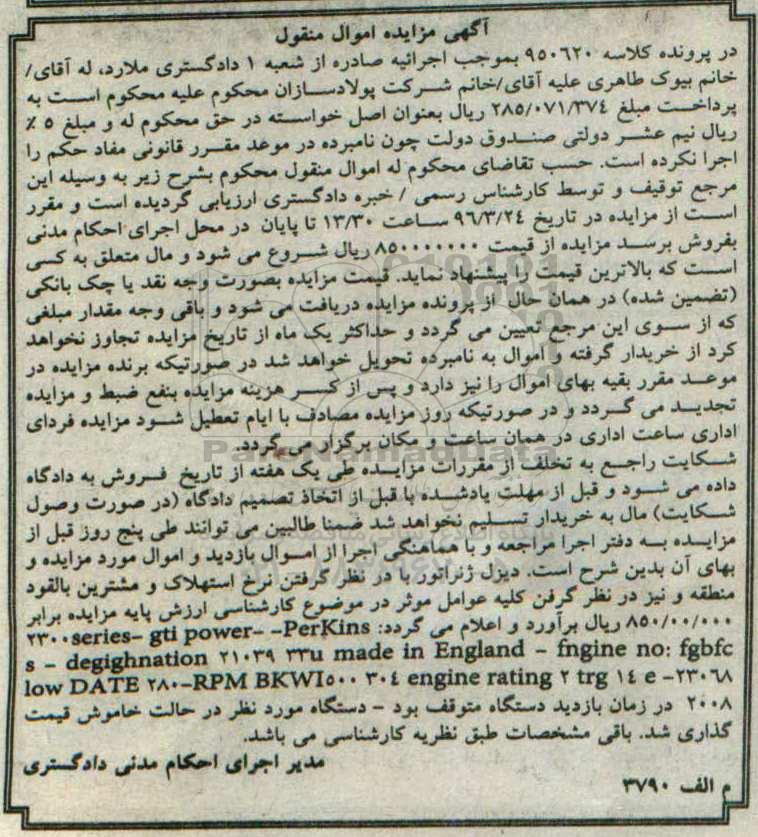 آگهی مزایده اموال منقول
در پرونده کلاسه ۹۵۰۶۲۰ بموجب اجرائیه صادره از شعبه ۱ دادگستری ملارد، له آقای/
خانم بیوک طاهری علیه آقای/خانم شرکت پولادسازان محکوم علیه محکوم است به
پرداخت مبلغ ۲۸۵/۰۷۱/۳۷۴ ریال بعنوان اصل خواسته در حق محکوم له و مبلغ ۵ ٪
ریال نیم عشر دولتی صندوق دولت چون نامبرده در موعد مقرر قانونی مفاد حکم را
اجرا نکرده است. حسب تقاضای محکوم له اموال منقول محکوم بشرح زیر به وسیله این
مرجع توقیف و توسط کارشناس رسمی / خبره دادگستری ارزیابی گردیده است و مقرر
است از مزایده در تاریخ ۹۶/۳/۲۴ ساعت ۱۳/۳۰ تا پایان در محل اجرای احکام مدنی
بفروش برسد مزایده از قیمت ۸۵۰۰۰۰۰۰۰ ریال شروع می شود و مال متعلق به کسی
است که بالاترین قیمت را پیشنهاد نماید. قیمت مزایده بصورت وجه نقد یا چک بانکی
(تضمین شده) در همان حال از پرونده مزایده دریافت می شود و باقی وجه مقدار مبلغی
که از سوی این مرجع تعیین می گردد و حداکثر یک ماه از تاریخ مزایده تجاوز نخواهد
کرد از خریدار گرفته و اموال به نامبرده تحویل خواهد شد در صورتیکه برنده مزایده در
موعد مقرر بقیه بهای اموال را نیز دارد و پس از کسر هزینه مزایده بنفع ضبط و مزایده
تجدید می گردد و در صورتیکه روز مزایده مصادف با ایام تعطیل شود مزایده فردای
اداری ساعت اداری در همان ساعت و مکان برگزار می گردد.
شکایت راجع به تخلف از مقررات مزایده طی یک هفته از تاریخ فروش به دادگاه
داده می شود و قبل از مهلت یادشده با قبل از اتخاذ تصمیم دادگاه (در صورت وصول
شکایت) مال به خریدار تسلیم نخواهد شد ضمنا طالبین می توانند طی پنج روز قبل از
مزایده به دفتر اجرا مراجعه و با هماهنگی اجرا از اموال بازدید و اموال مورد مزایده و
بهای آن بدین شرح است. دیزل ژنراتور با در نظر گرفتن نرخ استهلاک و مشترین بالقود
منطقه و نیز در نظر گرفن کلیه عوامل موثر در موضوع کارشناسی ارزش پایه مزایده برابر
۸۵۰/۰۰/۰۰۰ ریال برآورد و اعلام می گردد: ۲۳۰۰series- gti power- -PerKins
s - degighnation ۲۱۰۳۹ ۳۳u made in England - fngine no: fgbfc
low DATE ۲۸۰-RPM BKWI۵۰۰ ۳۰۴ engine rating ۲ trg ۱۴ e -۲۳۰۶۸
۲۰۰۸ در زمان بازدید دستگاه متوقف بود - دستگاه مورد نظر در حالت خاموش قیمت
گذاری شد. باقی مشخصات طبق نظریه کارشناسی می باشد.
مدیر اجرای احکام مدنی دادگستری
م الف ۳۷۹۰
ParsNamadData